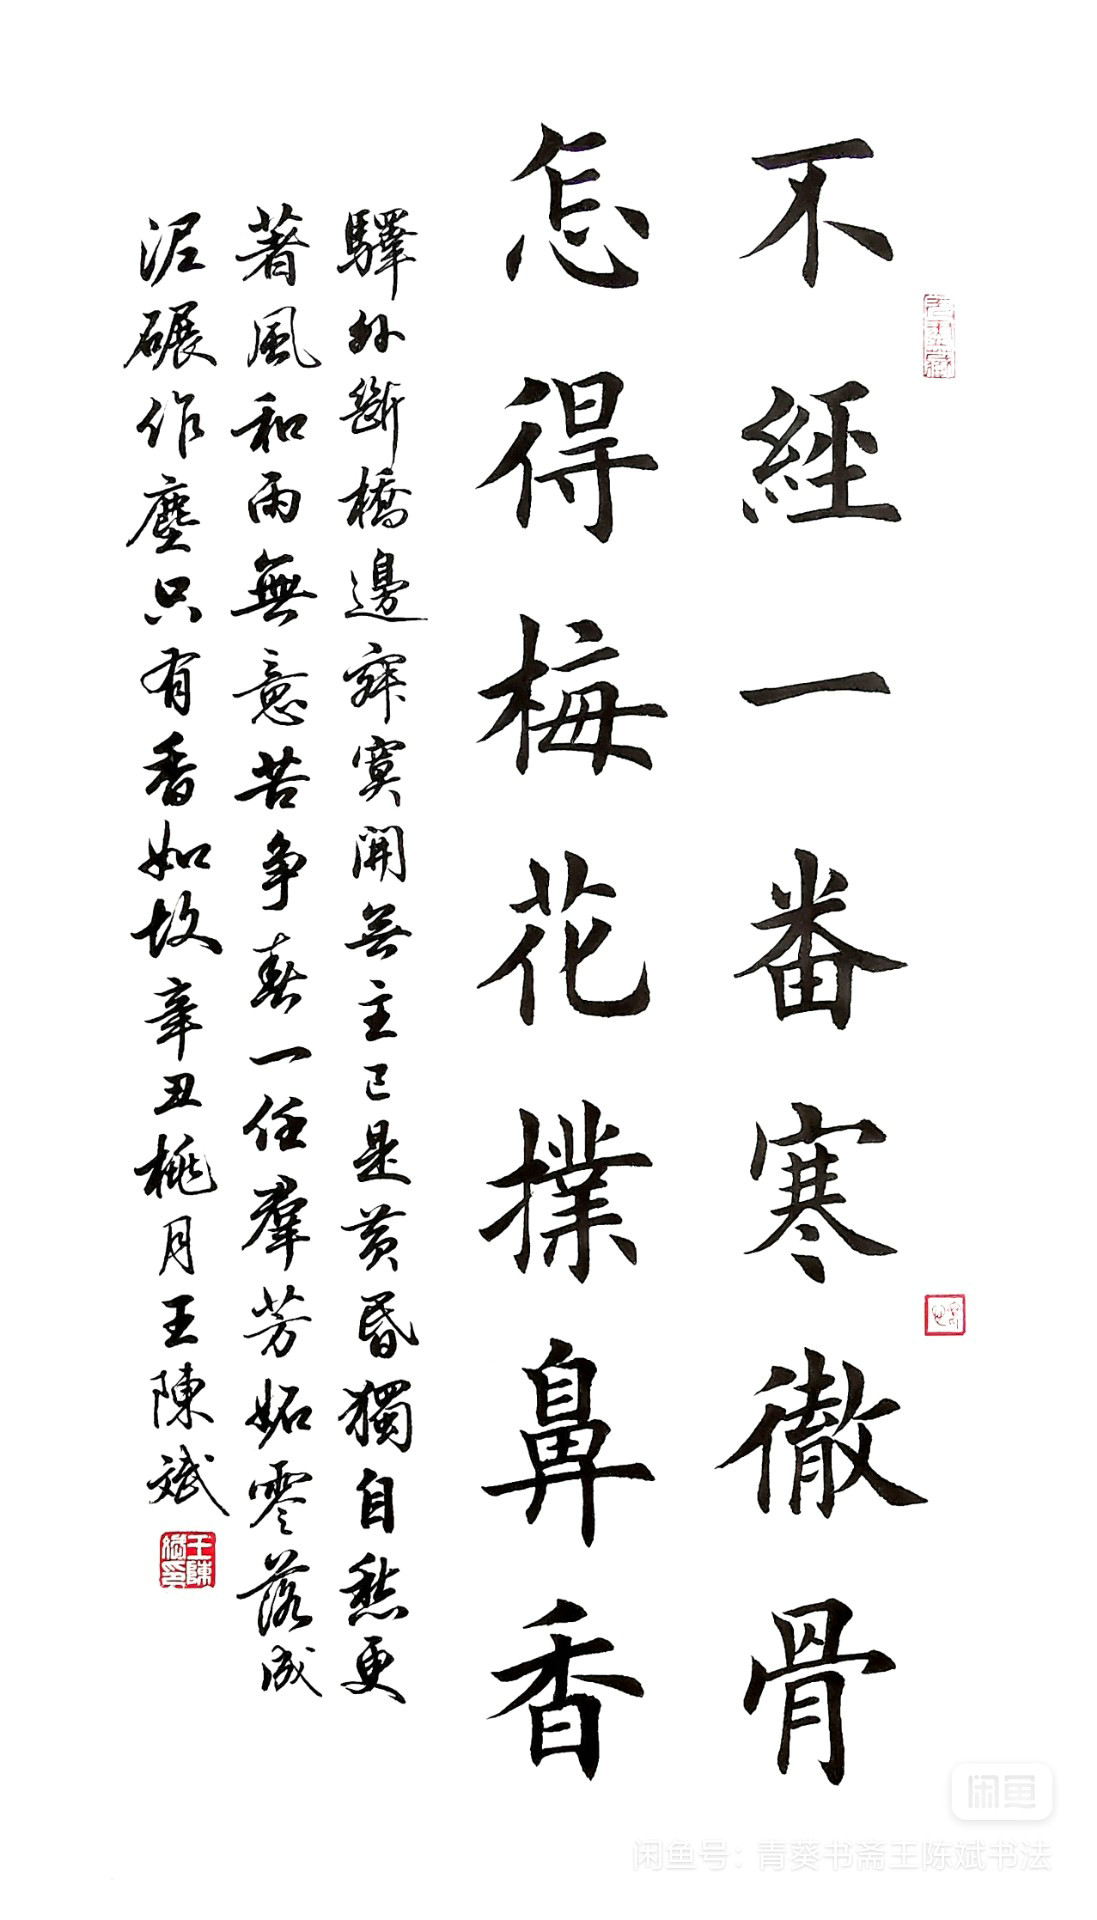 不經一番寒徹骨
怎得梅花撲鼻香
驛外斷橋邊寂寞開無主已是黃昏獨自愁更
著風和雨無意苦争春一任羣芳妬零落成
泥碾作塵只有香如故辛丑桃月王陳斌
王陳斌印
闲鱼
闲鱼号：青葵书斋王陈斌书法